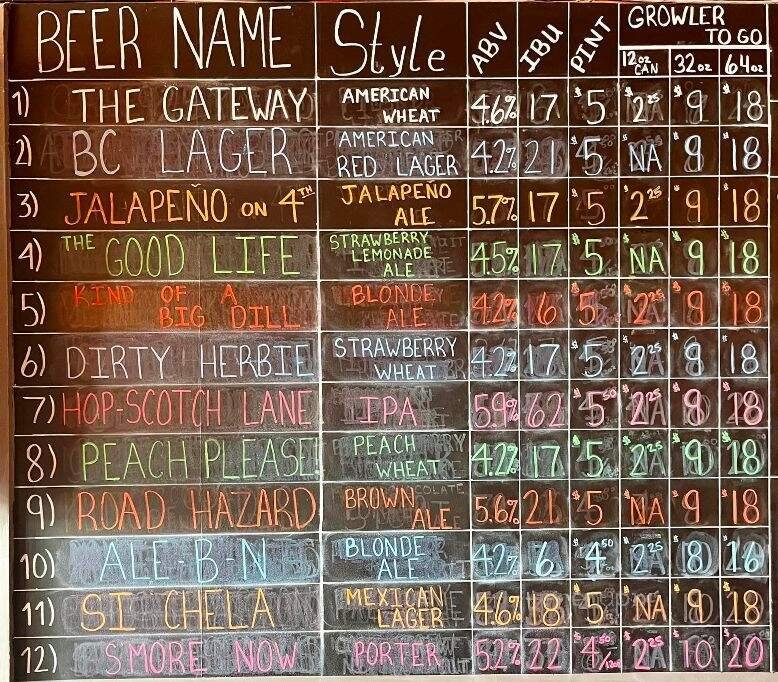 BEER NAME Style ABV IBU PINT GROWLER TO GO
12oz CAN 32oz 64oz
1) THE GATEWAY AMERICAN WHEAT 4.6% 17 $5 $2.25 $9 $18
2) BC LAGER AMERICAN RED LAGER 4.2% 21 $5 NA $9 $18
3) JALAPEÑO ON 4TH JALAPEÑO ALE 5.7% 17 $5 $2.25 $9 $18
4) THE GOOD LIFE STRAWBERRY LEMONADE ALE 4.5% 17 $5 NA $9 $18
5) KIND OF A BIG DILL BLONDE ALE 4.2% 6 $5 $2.25 $9 $18
6) DIRTY HERBIE STRAWBERRY WHEAT 4.2% 17 $5 $2.25 $9 $18
7) HOP-SCOTCH LANE IPA 5.9% 62 $5 $2.25 $9 $18
8) PEACH PLEASE! PEACH WHEAT 4.2% 17 $5 $2.25 $9 $18
9) ROAD HAZARD BROWN ALE 5.6% 21 $5 NA $9 $18
10) ALE-B-N BLONDE ALE 4.2% 6 $4.50 $2.25 $8 $16
11) SI CHELA MEXICAN LAGER 4.6% 18 $5 NA $9 $18
12) S'MORE NOW PORTER 5.2% 22 $4.50/12oz $2.25 $10 $20